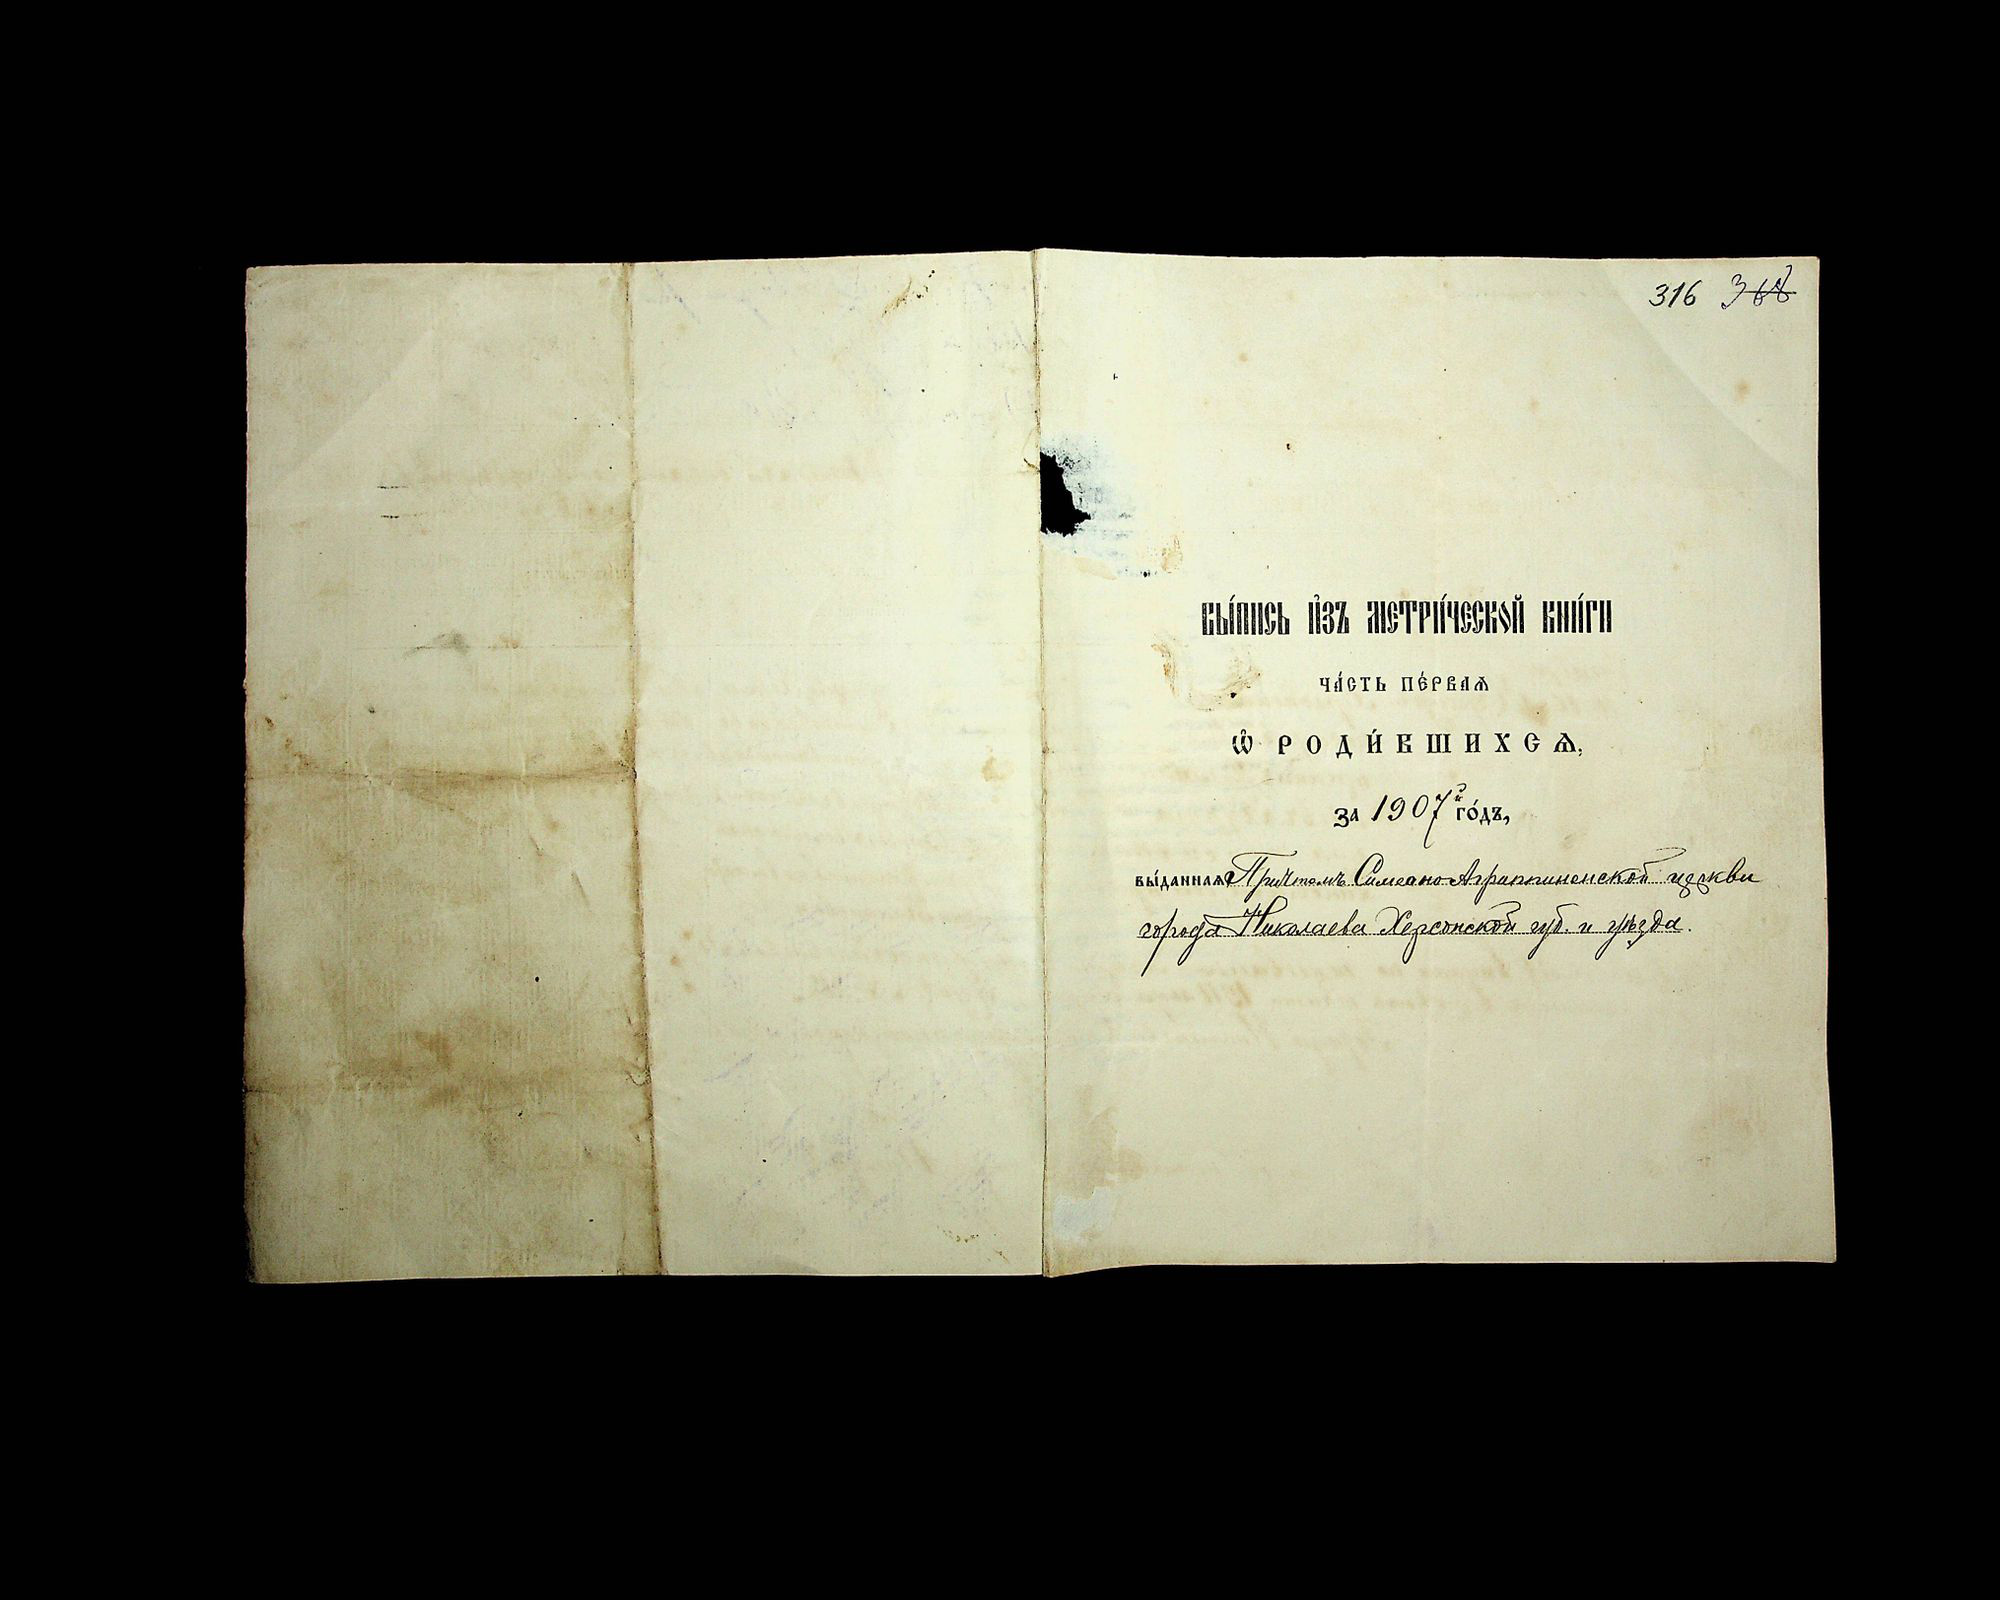 316 3
ВЫ́ПИСЬ И҆ЗЪ МЕТРИ́ЧЕСКОЙ КНИ́ГИ
ЧА́СТЬ ПЕ́РВАѦ
Ѡ҆ РОДИ́ВШИХСѦ,
за 1907й го́дъ,
вы́даннаѧ Причтомъ Симеоно-Агриппиненской церкви
города Николаева Херсонской губ. и уѣзда.